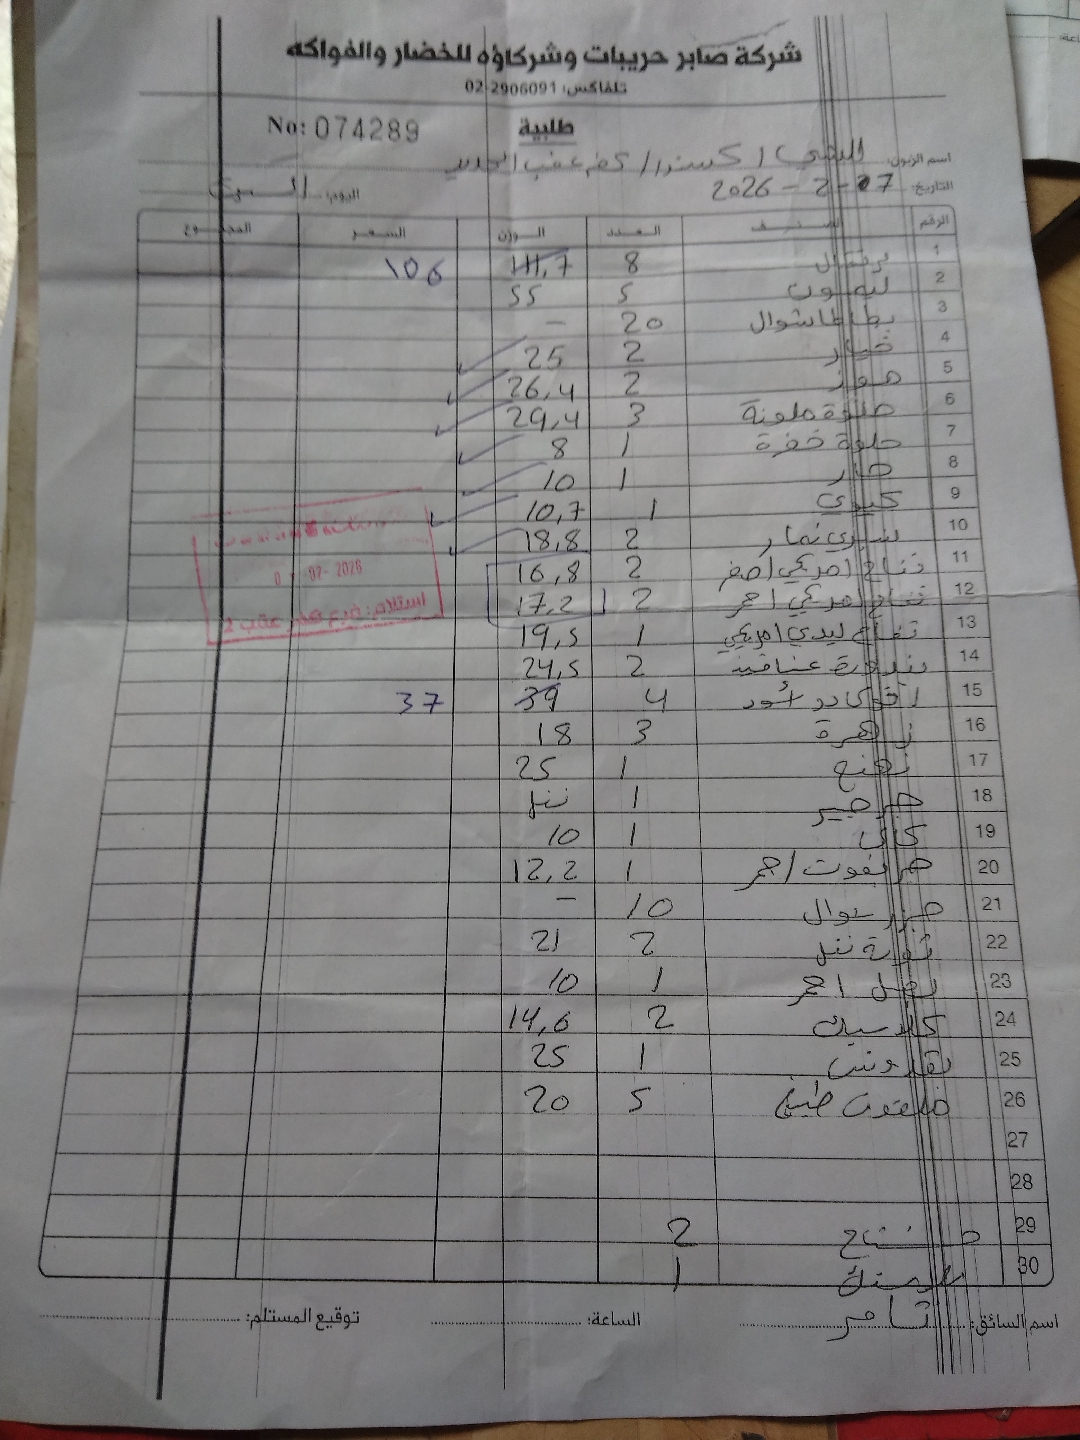 شركة صابر حريبات وشركاؤه للخضار والفواكه
تلفاكس: 02-2906091
No: 074289
طلبية
اسم الزبون: اكسترا / كفر عقب الجديد
التاريخ: 2026-2-07 اليوم: السبت
الرقم الصنف العدد الوزن السعر المجموع
1 برتقال 8 111,7 106
2 ليمون 5 55
3 بطاطا شوال 20 -
4 خيار 2 25
5 موز 2 26,4
6 حلوة ملونة 3 29,4
7 حلوة خضرة 1 8
8 حار 1 10
9 كيوي 1 10,7
10 2 18,8
11 تفاح امريكي اصفر 2 16,8
12 تفاح امريكي احمر 2 17,2
13 تفاح ليدي امريكي 1 19,5
14 بندورة عناقيد 2 24,5
15 افوكادو أسود 4 39 37
16 زهرة 3 18
17 نعنع 1 25
18 جرجير 1
19 كاكي 1 10
20 جريفوت احمر 1 12,2
21 جزر شوال 10 -
22 2 21
23 بصل احمر 1 10
24 كلاسيك 2 14,6
25 بقدونس 1 25
26 5 20
27
28
29 2
30 1
07-2026
استلام: فرع كفر عقب 2
اسم السائق: تامر الساعة: توقيع المستلم: